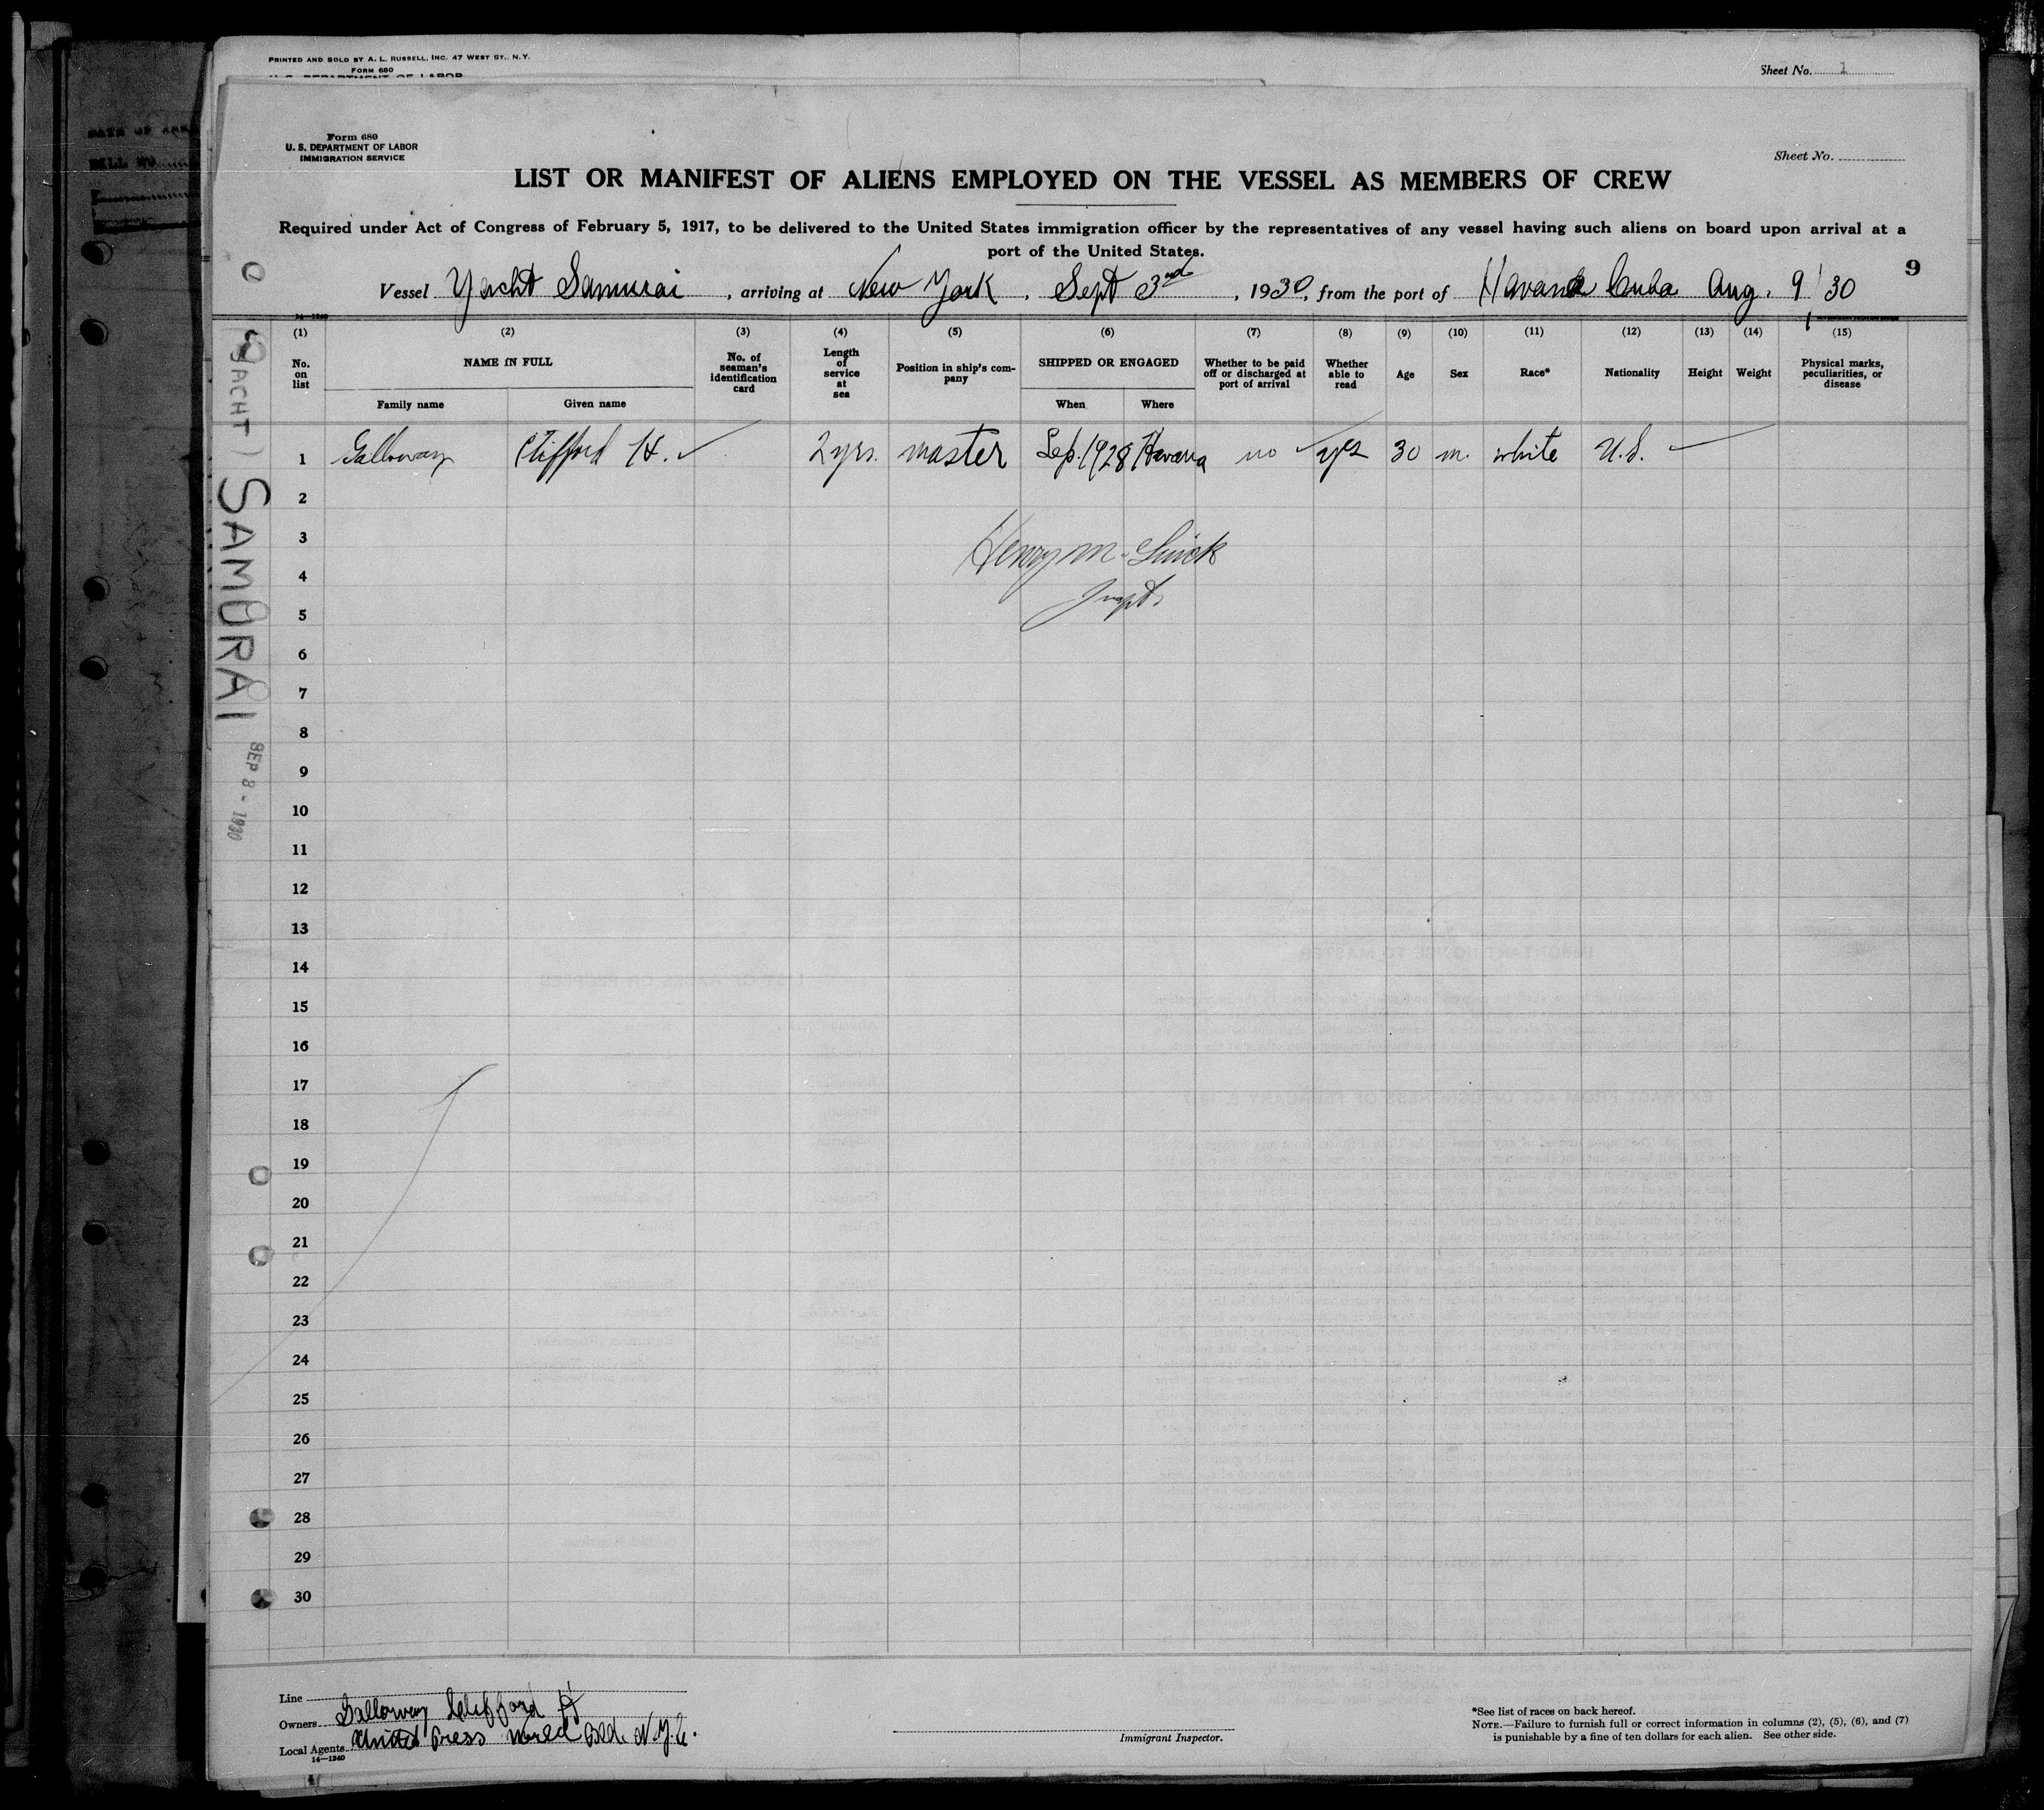 PRINTED AND SOLD BY A. L. RUSSELL, INC. 47 WEST ST., N.Y.
FORM 680
U. S. DEPARTMENT OF LABOR
Sheet No. 1
Form 680
U. S. DEPARTMENT OF LABOR
IMMIGRATION SERVICE
Sheet No.
LIST OR MANIFEST OF ALIENS EMPLOYED ON THE VESSEL AS MEMBERS OF CREW
Required under Act of Congress of February 5, 1917, to be delivered to the United States immigration officer by the representatives of any vessel having such aliens on board upon arrival at a
port of the United States.
9
Vessel Yacht Samurai, arriving at New York, Sept 3rd, 1930, from the port of Havana Cuba Aug. 9/30
14-1240
(1) (2) (3) (4) (5) (6) (7) (8) (9) (10) (11) (12) (13) (14) (15)
No. on list
NAME IN FULL
Family name
Given name
No. of seaman's identification card
Length of service at sea
Position in ship's company
SHIPPED OR ENGAGED
When
Where
Whether to be paid off or discharged at port of arrival
Whether able to read
Age
Sex
Race*
Nationality
Height
Weight
Physical marks, peculiarities, or disease
1 Galloway Clifford H. 2 yrs. master Sep. 1928 Havana no yes 30 m. white U.S.
2
3
Henry M.
4
5
Inspt.
6
7
8
9
10
11
12
13
14
15
16
17
18
19
20
21
22
23
24
25
26
27
28
29
30
(YACHT) SAMURAI
SEP 8 - 1930
Line
Owners Galloway Clifford H
Local Agents United Press World Bld. N.Y.C.
14-1240
Immigrant Inspector.
*See list of races on back hereof.
NOTE.—Failure to furnish full or correct information in columns (2), (5), (6), and (7)
is punishable by a fine of ten dollars for each alien. See other side.